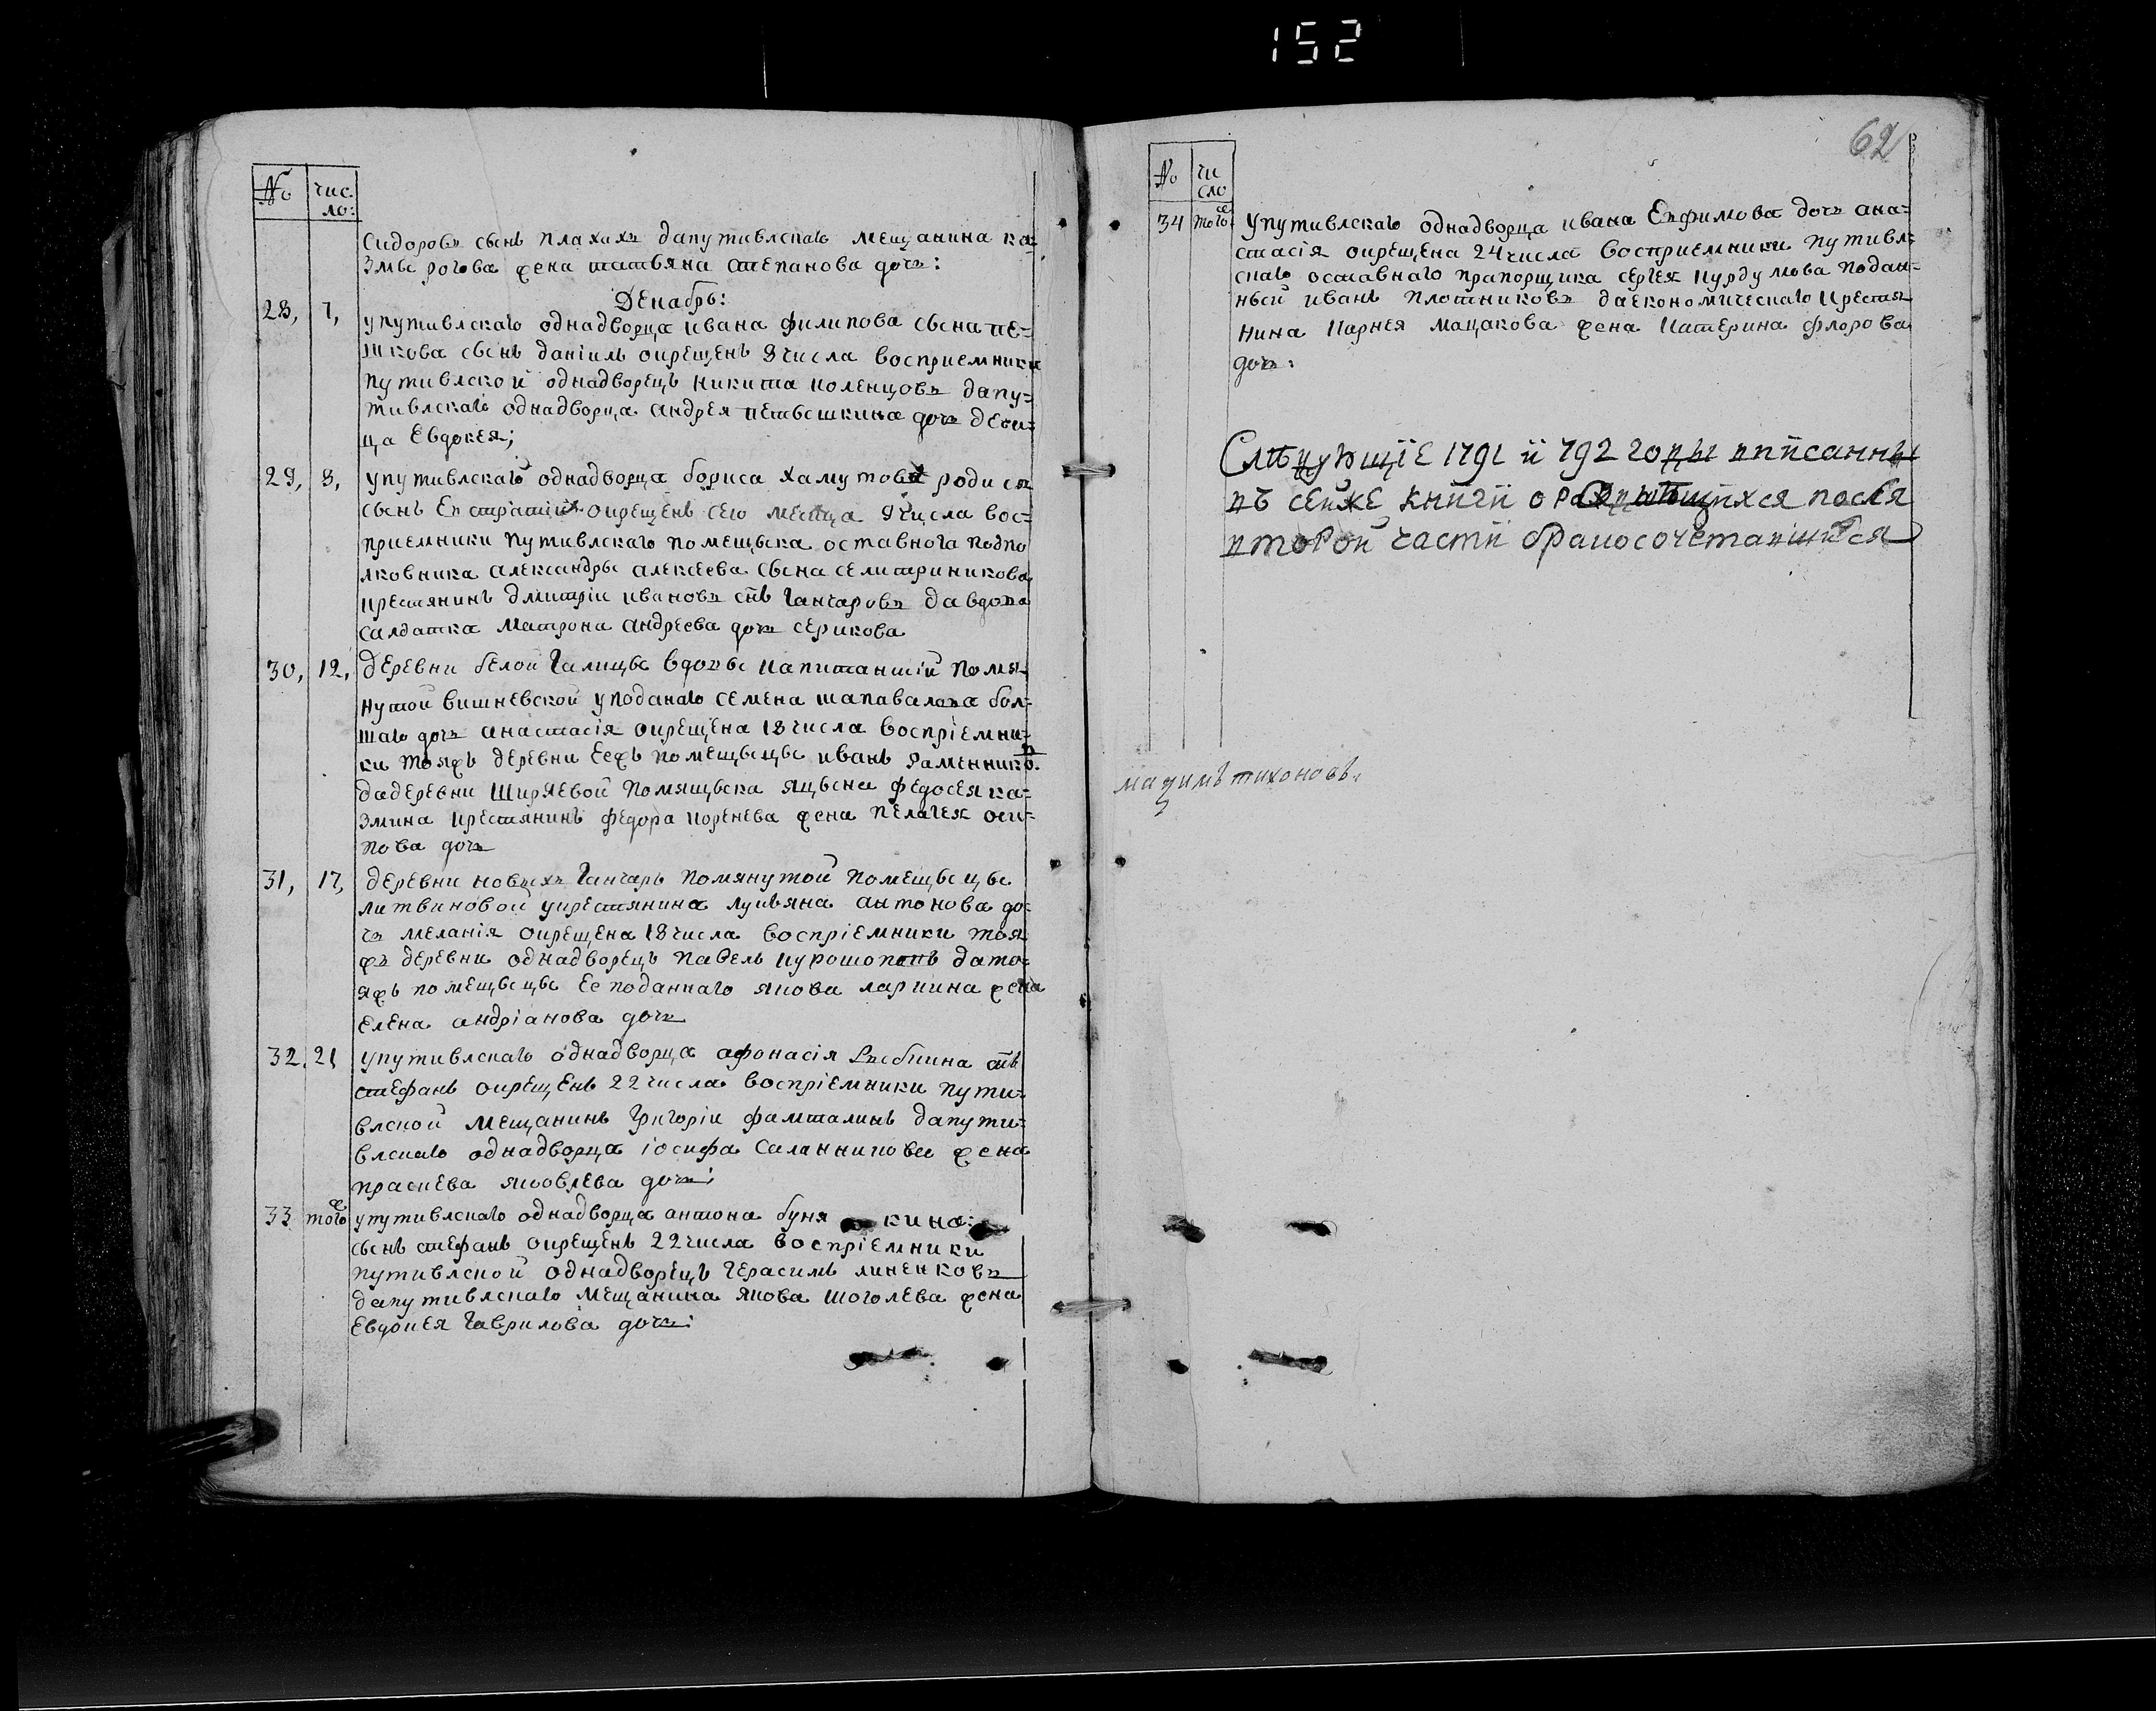 152
62
№ чис-
ло:
Сидоровъ сынъ плахихъ дапутивлскаго мещанина ка-
змы рогова жена татьяна степанова дочь:
Декабрь:
28, 7, упутивлскаго однадворца ивана филипова сына пе-
шкова сынъ даніилъ окрещенъ 8 числа восприемники
путивлской однадворецъ никита коленцовъ дапу-
тивлскаго однадворца андрея петьешкина дочь деви-
ца Евдокея;
29, 8, упутивлскаго однадворца бориса хамутова родися
сынъ Евстратий окрещенъ сего месяца 9 числа вос-
приемники путивлскаго помещыка оставнога подпо
лковника александры алексеева сына селитриникова
крестянинъ дмитріи ивановъ снъ ганчаровъ да вдова
салдатка матрона андреева дочь серикова
30, 12, деревни белой галицы вдовы капитаншій помя-
нутой вишневской уподанаго семена шаповалова бол-
шаго дочь анастасія окрещена 18 числа воспріемни-
ки тояжъ деревни Еежъ помещыцы иванъ раменников
дадеревни Ширяевой помящыка яцына федосея ка-
змина крестянинъ федора коренева жена пелагея оси-
пова дочь
31, 17, деревни новыхъ ганчаръ помянутой помещыцы
литвиновой укрестянина лукьяна антонова до-
чь меланія окрещена 18 числа воспріемники тоя
жъ деревни однадворецъ павелъ курошоповъ дато-
яжъ помещыцы Ее поданнаго якова ларкина жена
елена андріанова дочь
32, 21 упутивлскаго однадворца афонасія снъ
стефанъ окрещенъ 22 числа воспріемники пути-
влской мещанинъ григоріи фамталинъ дапути-
влскаго однадворца іосифа саланникова жена
праскева яковлева дочь:
33 тогоже упутивлскаго однадворца антона буня кина:
сынъ стефанъ окрещенъ 22 числа воспріемники
путивлской однадворецъ герасимъ линенковъ
дапутивлскаго мещанина якова щоголева жена
Евдокея гаврилова дочь:
№ чи
сло
34 тогоже упутивлскаго однадворца ивана Евфимова дочь ана-
стасія окрещена 24 числа восприемники путивл-
скаго оставнаго прапорщика сергея курдумова подан-
ный иванъ плотниковъ даекономическаго крестя
нина карнея мацакова жена катерина флорова
дочь:
Слѣдующіе 1791 и 792 годы вписанны
въ сейже книги о раждающихся посля
второй части бракосочетавшихся
мазимъ тихоновъ.